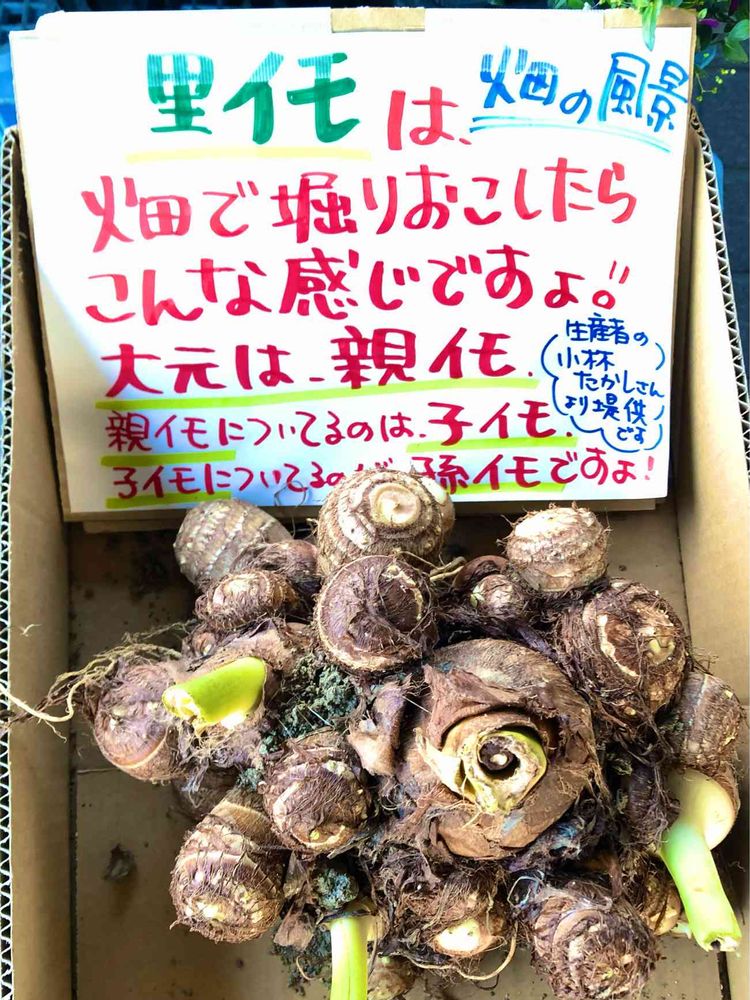 里イモは、
畑の風景
畑で堀りおこしたら
こんな感じですょ!!
大元は、親イモ、
親イモについてるのは、子イモ、
子イモについてるのが 孫イモですょ!
生産者の
小林
たかしさん
より堤供
です